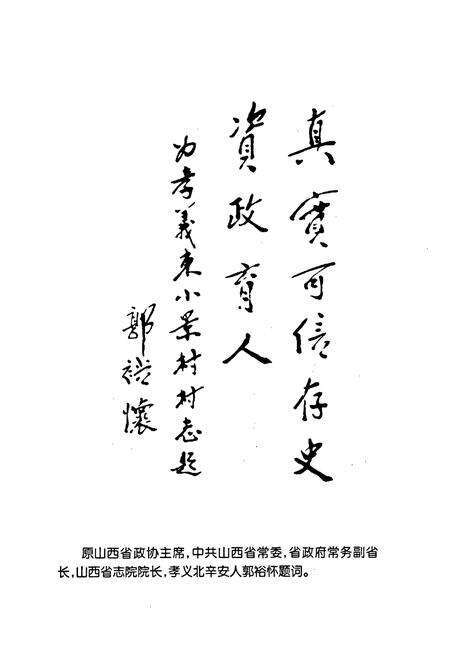 真實可信存史
資政育人
为孝義東小景村村志題
郭裕懷
原山西省政协主席,中共山西省常委,省政府常务副省
长,山西省志院院长,孝义北辛安人郭裕怀题词。